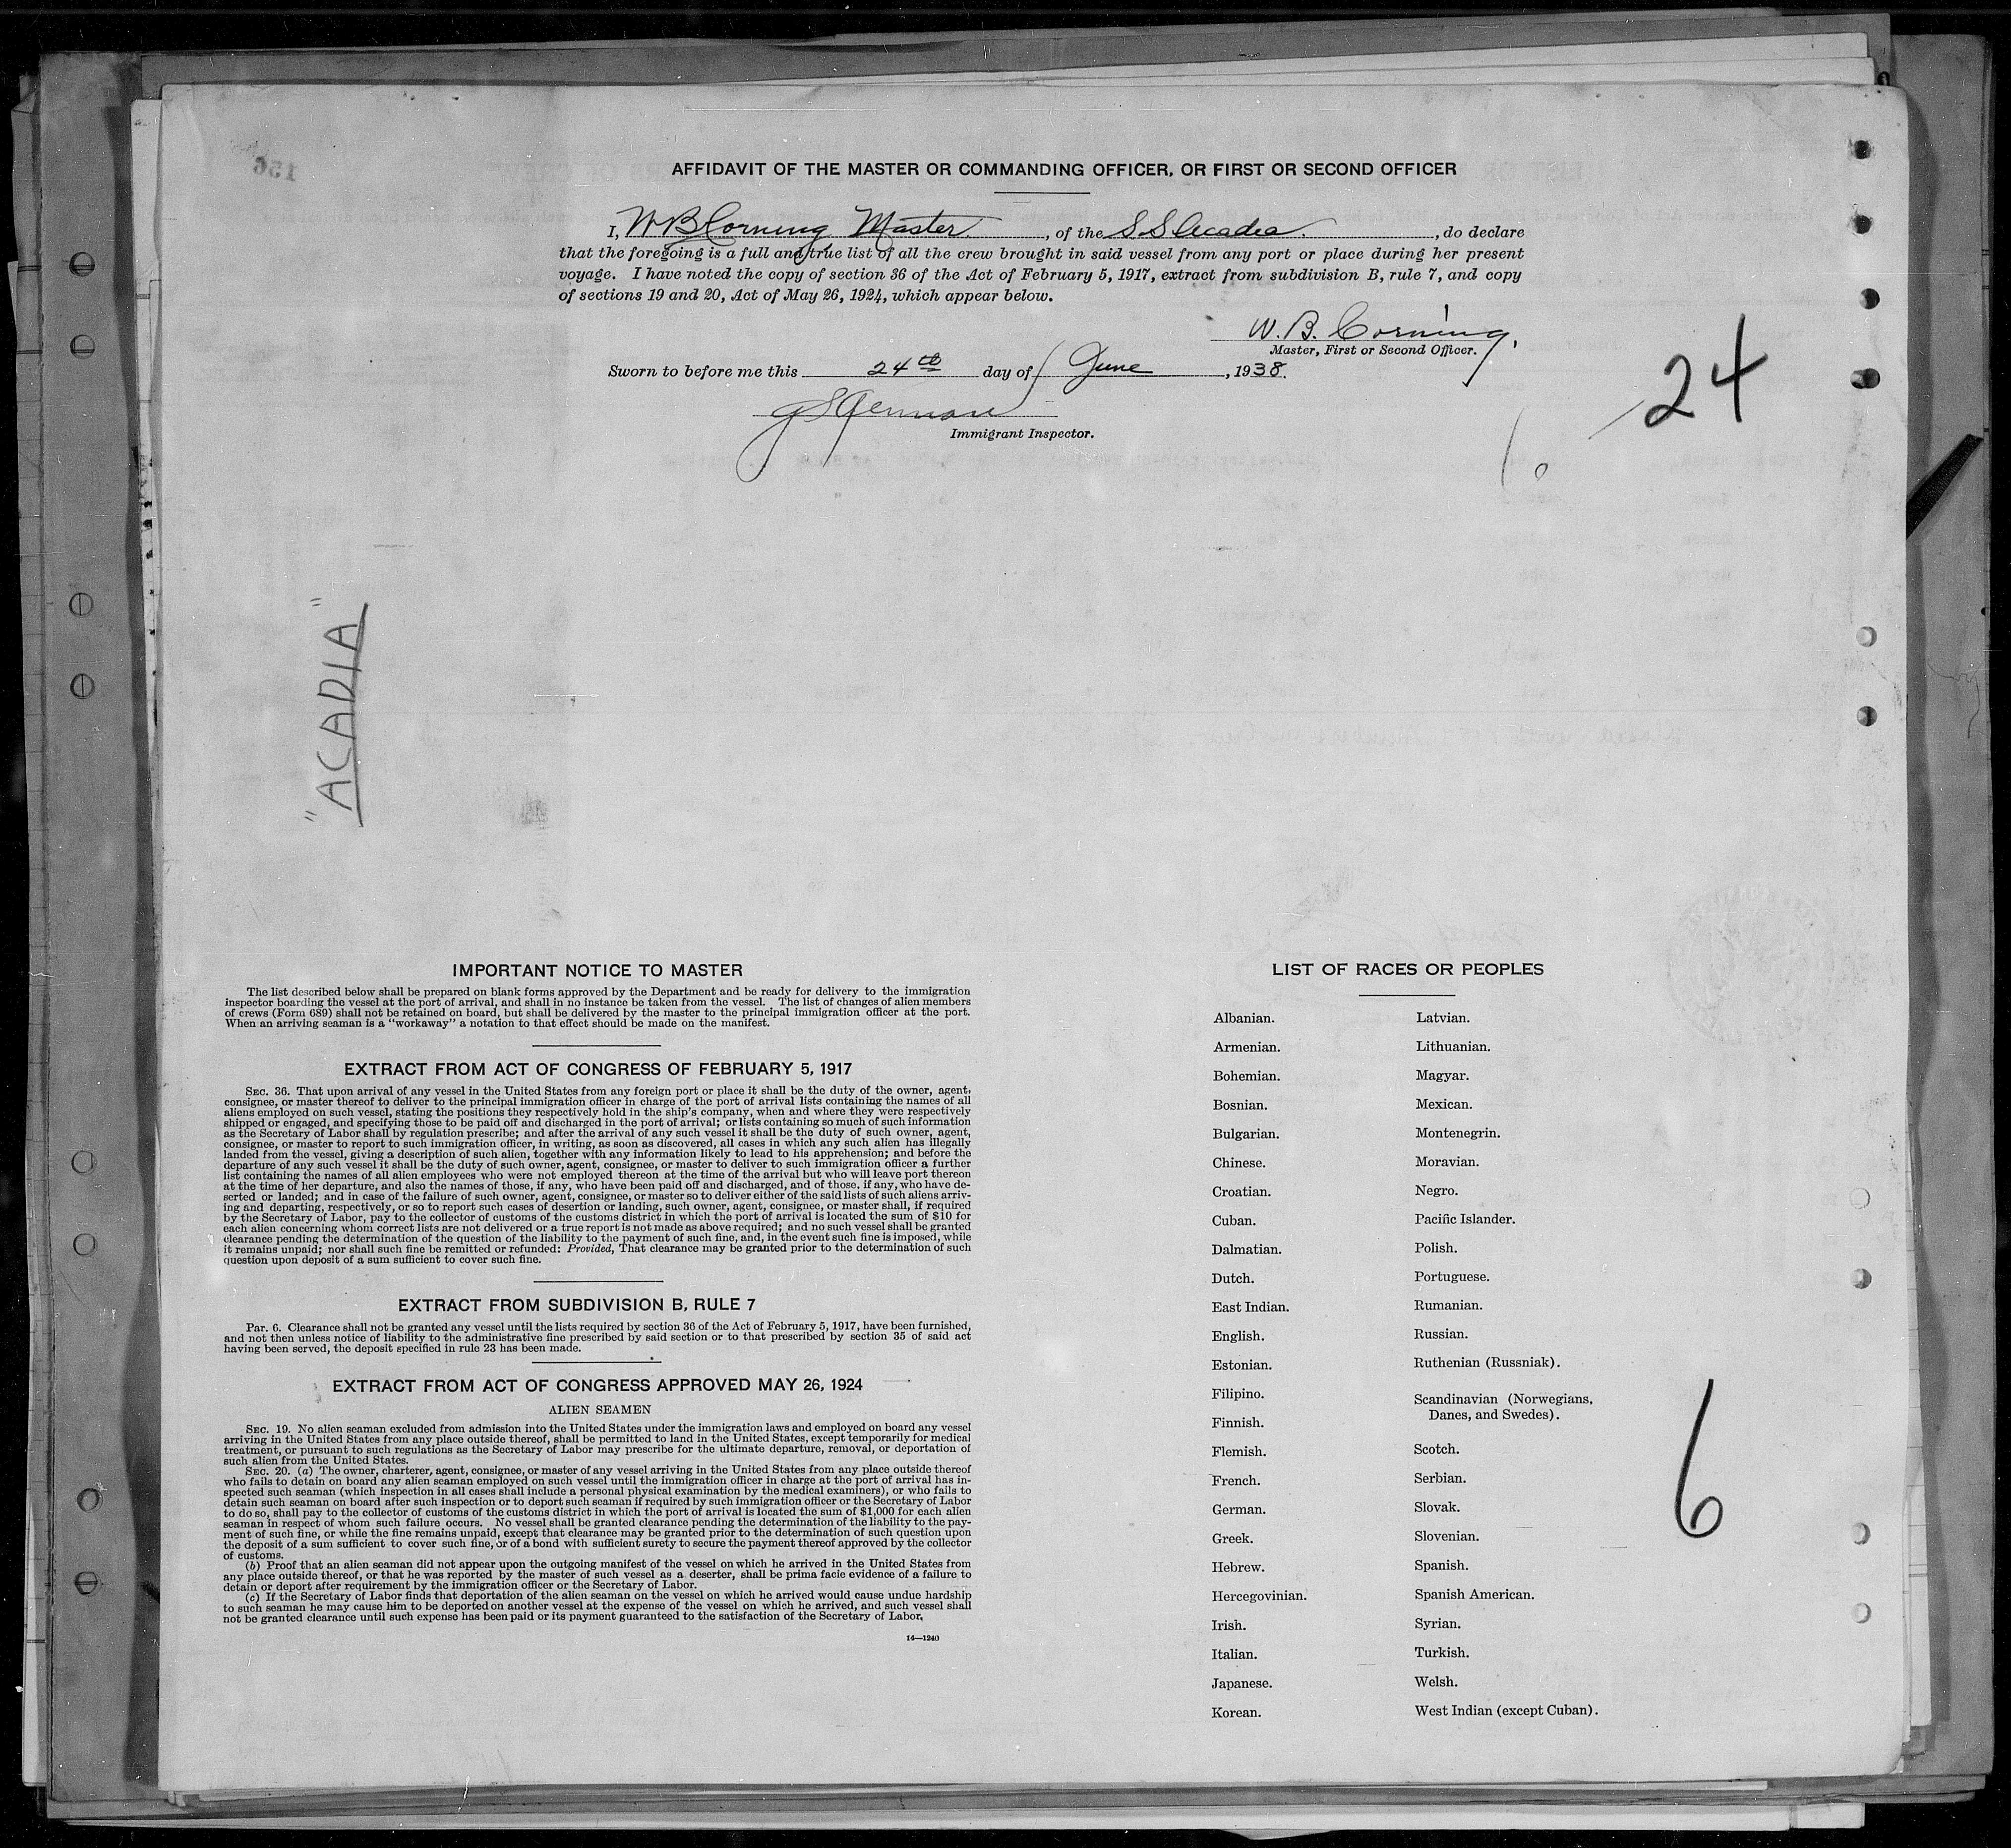 AFFIDAVIT OF THE MASTER OR COMMANDING OFFICER, OR FIRST OR SECOND OFFICER
I, W B Corning Master, of the S.S. Acadia., do declare
that the foregoing is a full and true list of all the crew brought in said vessel from any port or place during her present
voyage. I have noted the copy of section 36 of the Act of February 5, 1917, extract from subdivision B, rule 7, and copy
of sections 19 and 20, Act of May 26, 1924, which appear below.
W. B. Corning,
Master, First or Second Officer.
Sworn to before me this 24th day of June, 1938.
Immigrant Inspector.
24
"ACADIA"
IMPORTANT NOTICE TO MASTER
The list described below shall be prepared on blank forms approved by the Department and be ready for delivery to the immigration
inspector boarding the vessel at the port of arrival, and shall in no instance be taken from the vessel. The list of changes of alien members
of crews (Form 689) shall not be retained on board, but shall be delivered by the master to the principal immigration officer at the port.
When an arriving seaman is a "workaway" a notation to that effect should be made on the manifest.
EXTRACT FROM ACT OF CONGRESS OF FEBRUARY 5, 1917
SEC. 36. That upon arrival of any vessel in the United States from any foreign port or place it shall be the duty of the owner, agent,
consignee, or master thereof to deliver to the principal immigration officer in charge of the port of arrival lists containing the names of all
aliens employed on such vessel, stating the positions they respectively hold in the ship's company, when and where they were respectively
shipped or engaged, and specifying those to be paid off and discharged in the port of arrival; or lists containing so much of such information
as the Secretary of Labor shall by regulation prescribe; and after the arrival of any such vessel it shall be the duty of such owner, agent,
consignee, or master to report to such immigration officer, in writing, as soon as discovered, all cases in which any such alien has illegally
landed from the vessel, giving a description of such alien, together with any information likely to lead to his apprehension; and before the
departure of any such vessel it shall be the duty of such owner, agent, consignee, or master to deliver to such immigration officer a further
list containing the names of all alien employees who were not employed thereon at the time of the arrival but who will leave port thereon
at the time of her departure, and also the names of those, if any, who have been paid off and discharged, and of those, if any, who have de-
serted or landed; and in case of the failure of such owner, agent, consignee, or master so to deliver either of the said lists of such aliens arriv-
ing and departing, respectively, or so to report such cases of desertion or landing, such owner, agent, consignee, or master shall, if required
by the Secretary of Labor, pay to the collector of customs of the customs district in which the port of arrival is located the sum of $10 for
each alien concerning whom correct lists are not delivered or a true report is not made as above required; and no such vessel shall be granted
clearance pending the determination of the question of the liability to the payment of such fine, and, in the event such fine is imposed, while
it remains unpaid; nor shall such fine be remitted or refunded: Provided, That clearance may be granted prior to the determination of such
question upon deposit of a sum sufficient to cover such fine.
EXTRACT FROM SUBDIVISION B, RULE 7
PAR. 6. Clearance shall not be granted any vessel until the lists required by section 36 of the Act of February 5, 1917, have been furnished,
and not then unless notice of liability to the administrative fine prescribed by said section or to that prescribed by section 35 of said act
having been served, the deposit specified in rule 23 has been made.
EXTRACT FROM ACT OF CONGRESS APPROVED MAY 26, 1924
ALIEN SEAMEN
SEC. 19. No alien seaman excluded from admission into the United States under the immigration laws and employed on board any vessel
arriving in the United States from any place outside thereof, shall be permitted to land in the United States, except temporarily for medical
treatment, or pursuant to such regulations as the Secretary of Labor may prescribe for the ultimate departure, removal, or deportation of
such alien from the United States.
SEC. 20. (a) The owner, charterer, agent, consignee, or master of any vessel arriving in the United States from any place outside thereof
who fails to detain on board any alien seaman employed on such vessel until the immigration officer in charge at the port of arrival has in-
spected such seaman (which inspection in all cases shall include a personal physical examination by the medical examiners), or who fails to
detain such seaman on board after such inspection or to deport such seaman if required by such immigration officer or the Secretary of Labor
to do so, shall pay to the collector of customs of the customs district in which the port of arrival is located the sum of $1,000 for each alien
seaman in respect of whom such failure occurs. No vessel shall be granted clearance pending the determination of the liability to the pay-
ment of such fine, or while the fine remains unpaid, except that clearance may be granted prior to the determination of such question upon
the deposit of a sum sufficient to cover such fine, or of a bond with sufficient surety to secure the payment thereof approved by the collector
of customs.
(b) Proof that an alien seaman did not appear upon the outgoing manifest of the vessel on which he arrived in the United States from
any place outside thereof, or that he was reported by the master of such vessel as a deserter, shall be prima facie evidence of a failure to
detain or deport after requirement by the immigration officer or the Secretary of Labor.
(c) If the Secretary of Labor finds that deportation of the alien seaman on the vessel on which he arrived would cause undue hardship
to such seaman he may cause him to be deported on another vessel at the expense of the vessel on which he arrived, and such vessel shall
not be granted clearance until such expense has been paid or its payment guaranteed to the satisfaction of the Secretary of Labor.
14—1240
LIST OF RACES OR PEOPLES
Albanian.
Armenian.
Bohemian.
Bosnian.
Bulgarian.
Chinese.
Croatian.
Cuban.
Dalmatian.
Dutch.
East Indian.
English.
Estonian.
Filipino.
Finnish.
Flemish.
French.
German.
Greek.
Hebrew.
Hercegovinian.
Irish.
Italian.
Japanese.
Korean.
Latvian.
Lithuanian.
Magyar.
Mexican.
Montenegrin.
Moravian.
Negro.
Pacific Islander.
Polish.
Portuguese.
Rumanian.
Russian.
Ruthenian (Russniak).
Scandinavian (Norwegians,
Danes, and Swedes).
Scotch.
Serbian.
Slovak.
Slovenian.
Spanish.
Spanish American.
Syrian.
Turkish.
Welsh.
West Indian (except Cuban).
6